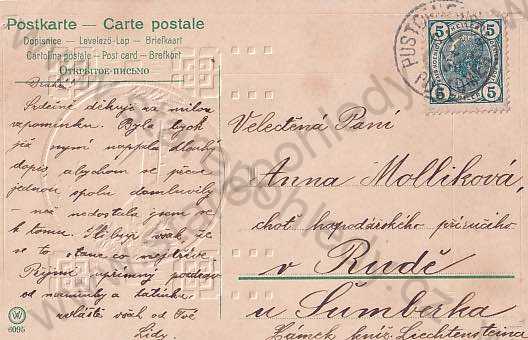 Postkarte — Carte postale
Dopisnice — Levelező-Lap — Briefkaart
Cartolina postale — Post card — Brefkort
Открытое письмо
Drahá
Srdečně děkuji za milou
vzpomínku. Byla bych
již nyní napsala dlouhý
dopis, abychom se přece
jednou spolu domluvily
– než nedostala jsem se
k tomu. Slibuji však že
se to stane co nejdříve
Přijmi upřímný pozdrav
od maminky a tatínka
zvláště však od Tvé
Lidy.
6095
PUSTO
5 5
5 5
Veletěná Paní
Anna Molliková,
choť hospodářského příručího
v Rudě
u Šumberka
Zámek kníž. Liechtensteina